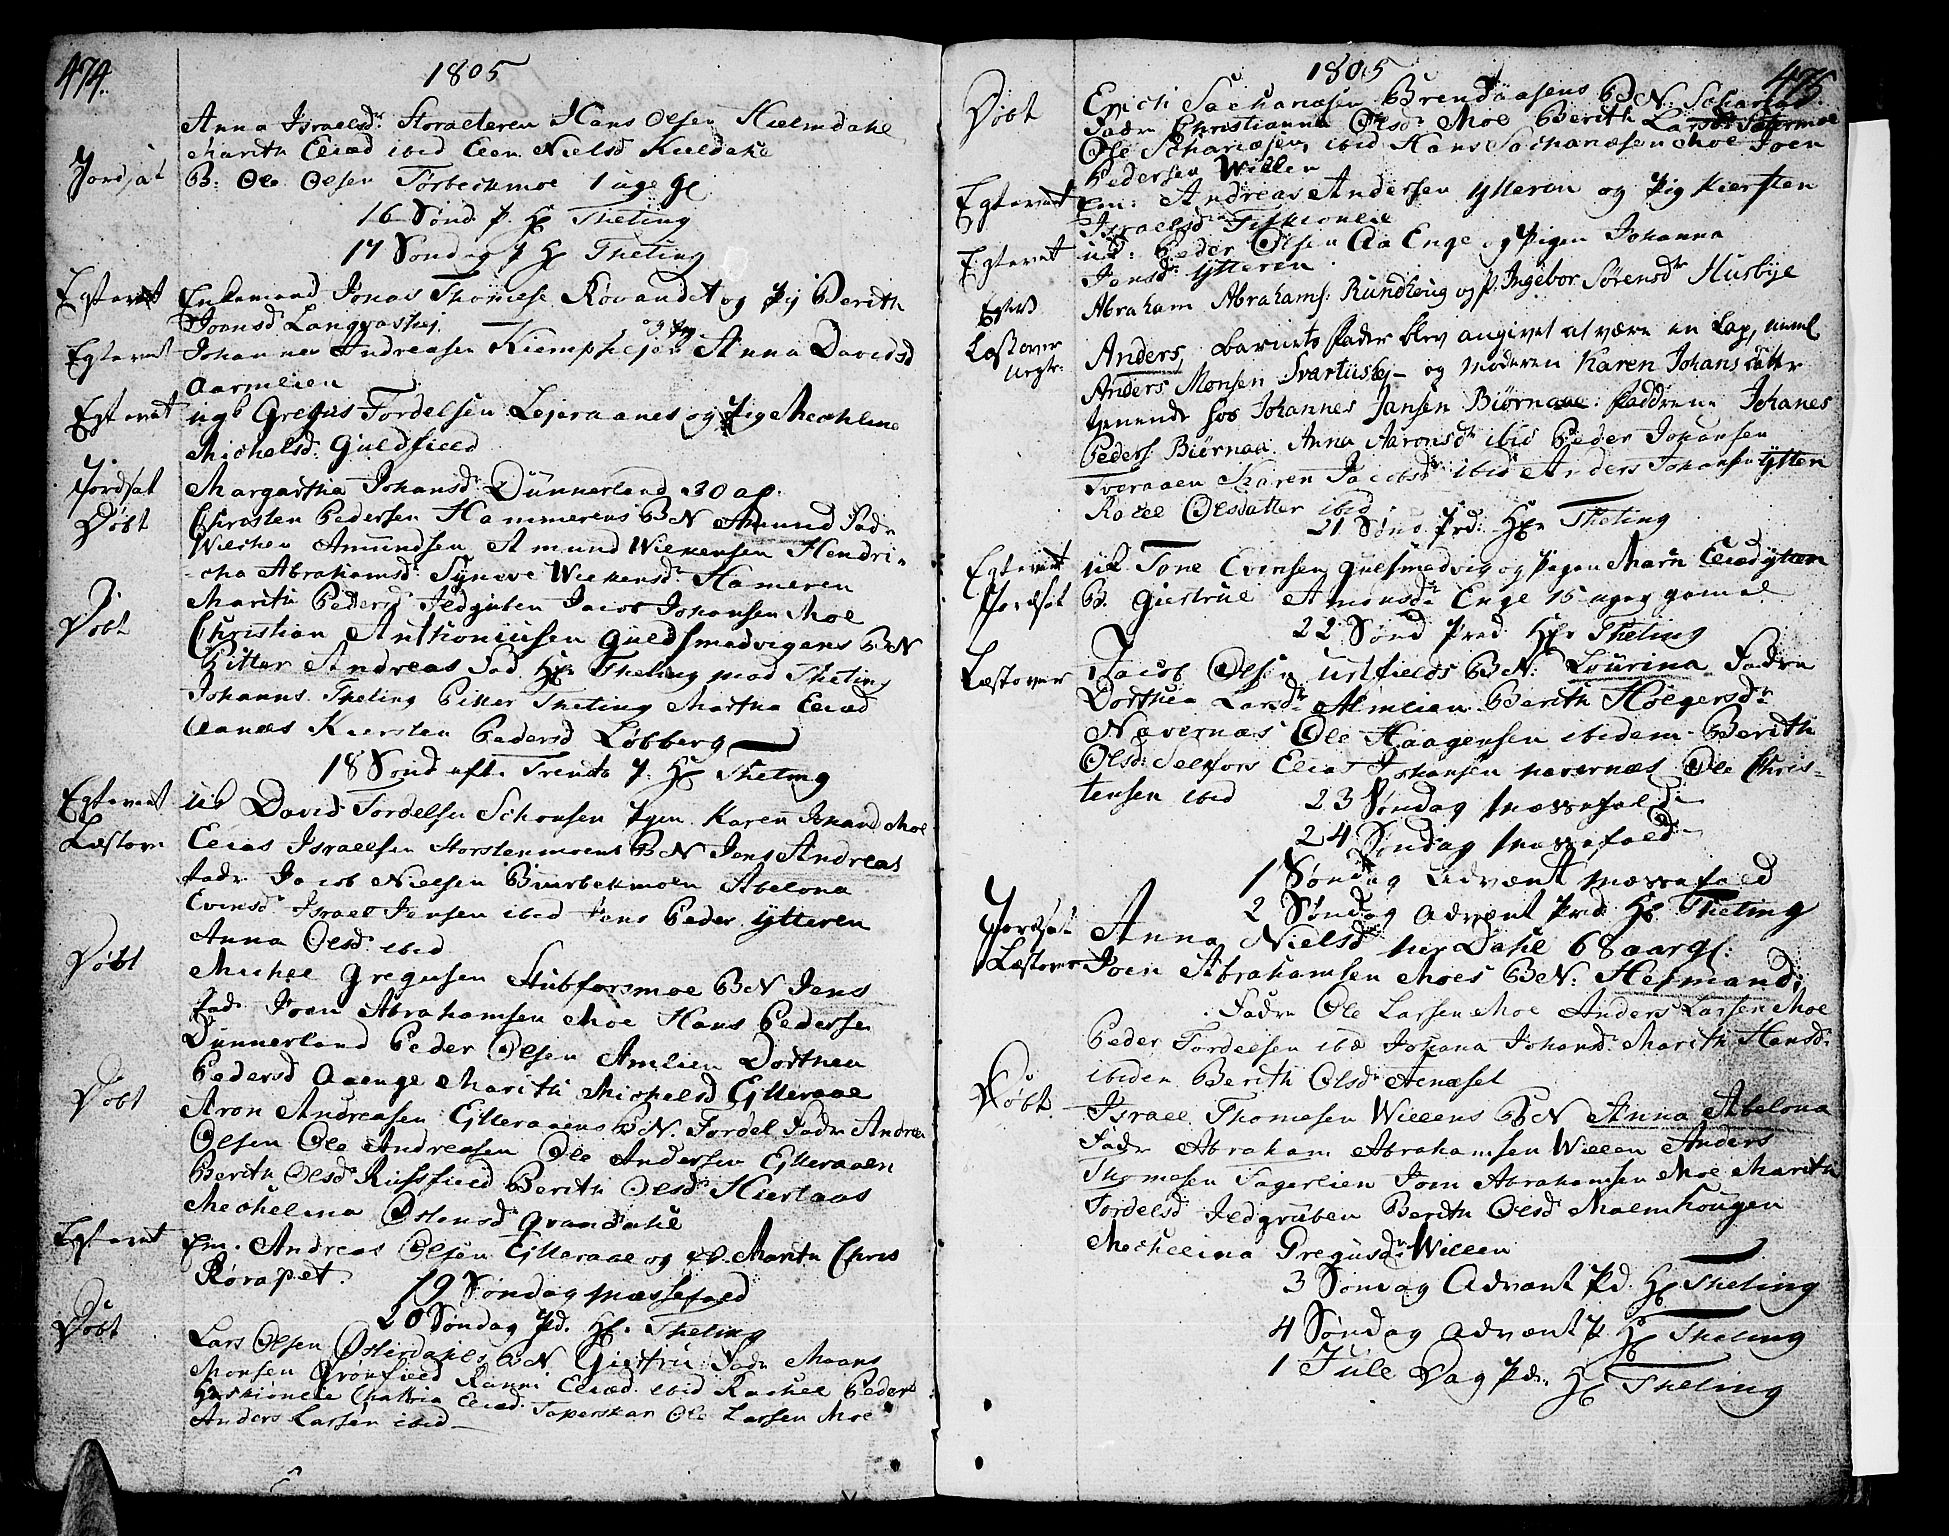 474.
1805
Anna Israelsdr Storalteren Hans Olsen Hielmdahl
Marith Eliæd ibid Elen Nielsd Kieldahl
Jordsat B: Ole Olsen Forbeckmoe 1 uge gl
16 Sønd. P. Hr Theting
17 Søndag P Hr Theting
Egteviet Enkemand Jonas Thomese Røvandet og Pij Berith
Joensd Langvashej.
Egteviet Johannes Andreasen Kiemphejen og Pig Anna Davidsd
Aarmlien
Egteviet ugb Gregus Tordelsen Lejeraanes og Pige Mechline
Michelsd: Guldfield
Jordsat Margartha Johansd: Dunnerland 30 ap.
Døbt Christen Pedersen Hammerens BN Amund Fadr
Wilchen Amundsen Amund Wilkensen Hendri-
cha Abrahamsd: Syneve Wilkensd: Hameren
Marith Pedersd Ildgruben Jacob Johansen Moe
Døbt Christian Anthoniusen Guldsmedvigens BN
Pitter Andreas Fad Hr Theling mad Theting
Johanns Theling Pitter Theting Martha Eliæd
Aanæs Kiersten Pedersd Løbberg
18 Sønd eft. Trenita P. Hr Theting
Egteviet ub David Tordelse Schonsen Pgen Karen Johand Moe
Læstover Elias Israelsen Storstenmoens BN Jens Andreas
Fadr Jacob Nielsen Biurbekmoen Abelona
Evensd: Israel Jensen ibid Jens Peder Ytteren
Anna Olsd ibid
Døbt Michel Gregusen Stubforsmoe BN Jens
Fad: Joen Abrahamsen Moe Hans Pedersen
Dunnerland Peder Olsen Amlien Dorthea
Pedersd Aaenge Marith Michelsd Ejlleraae
Døbt Aron Andreasen Ejlleraaens BN. Tordel Fadr Andrea
Olsen Ole Andreasen Ole Andersen Ejlleraaen
Berith Olsd Rusfield Berith Olsd Hiertaas
Mechelina Østensd Grandahl
Egteviet Em. Andreas Olsen Ejlleraae og Marith Chris
Rørapet.
19 Søndag Mæssefald
20 Søndag Pd. Hr. Theting
Døbt Lars Olsen Østerdahls BN Giertru Fadr Moans
Monsen Grønfield Ranni Eliæd ibid Rachel Peder
Eliæd: Taperskar Ole Larsen Moe
Anders Larsen ibid
1805
475
Døbt Erich Sachariæsen Brendaasens BN: Sacharias
Fadr Christianna Olsd Moe Berith Larsd Storemoe
Ole Schariæsen ibid Hans Sachariæsen Moe Joen
Pedersen Willen
Egteviet Em: Andreas Andersen Ytteren og Pig Kiersten
Israelsd
Egteviet uk: Peder Olsen Aa Enge og Pigen Johanna
Jensd Ytteren
Egtevd Abraham Abrahams: Rundhoug og P. Ingebor Sørensdr Husbye
Læstover uegte. Anders, Barnets Fader blev angivet at være en Lap, navnl
Anders Monsen Svartiishej - og Moderen Karen Johansdatter
tjenende hos Johannes Jansen Biørnaae: Faddrene Johanes
Peders Biørnaa. Anna Aaronsdr ibid Peder Johansen
Sveraaen Karen Jacobsdr ibid Anders Johansen Ytteren
Rakel Olsdatter ibid
21 Sønd Prd: Hr Theting
Egteviet uk Tone Evensen Gulsmedvig og Pigen Marn Eliæd Ytteren
Jordsat B. Giertrue Amonsdr Enge 15 uger gamal
22 Sønd Pred Hr Theting
Læstover Jacob Olsen Urtfields BN: Lourina Fadrn
Dorthea Larsdr Almlien Berith Holgersdr
Nævernæs Ole Haagensen ibidem Berith
Olsd: Selfors Elias Johansen Nævernæs Ole Chris-
tensen ibid
23 Søndag Mæssefald
24 Søndag Mæssefald
1 Søndag Advent Mæssefald
2 Søndag Advent Pred Hr Theting
Jordsat Anna Nielsdr her Dahl 68 aar gl:
Læstover Joen Abrahamsen Moes BN: Hetmand:
Fadr Ole Larsen Moe Anders Larsen Moe
Peder Tordelsen ibd Johana Johansdr Marith Hansdr
ibiden Berith Olsdr Aenæset
Døbt. Israel Thomesen Willens BN Anna Abelona
Fadr Abraham Abrahamsen Willen Anders
Thomesen Fagerlien Joen Abrahamsen Moe Marith
Tordelsd Ildgruben Berith Olsd Malmhougen
Mechelina Gregusdr Willen
3 Søndag Advent Pd. Hr Theting
4 Søndag Advent P. Hr Theting
1 Jule Dag Pdr. Hr Theting